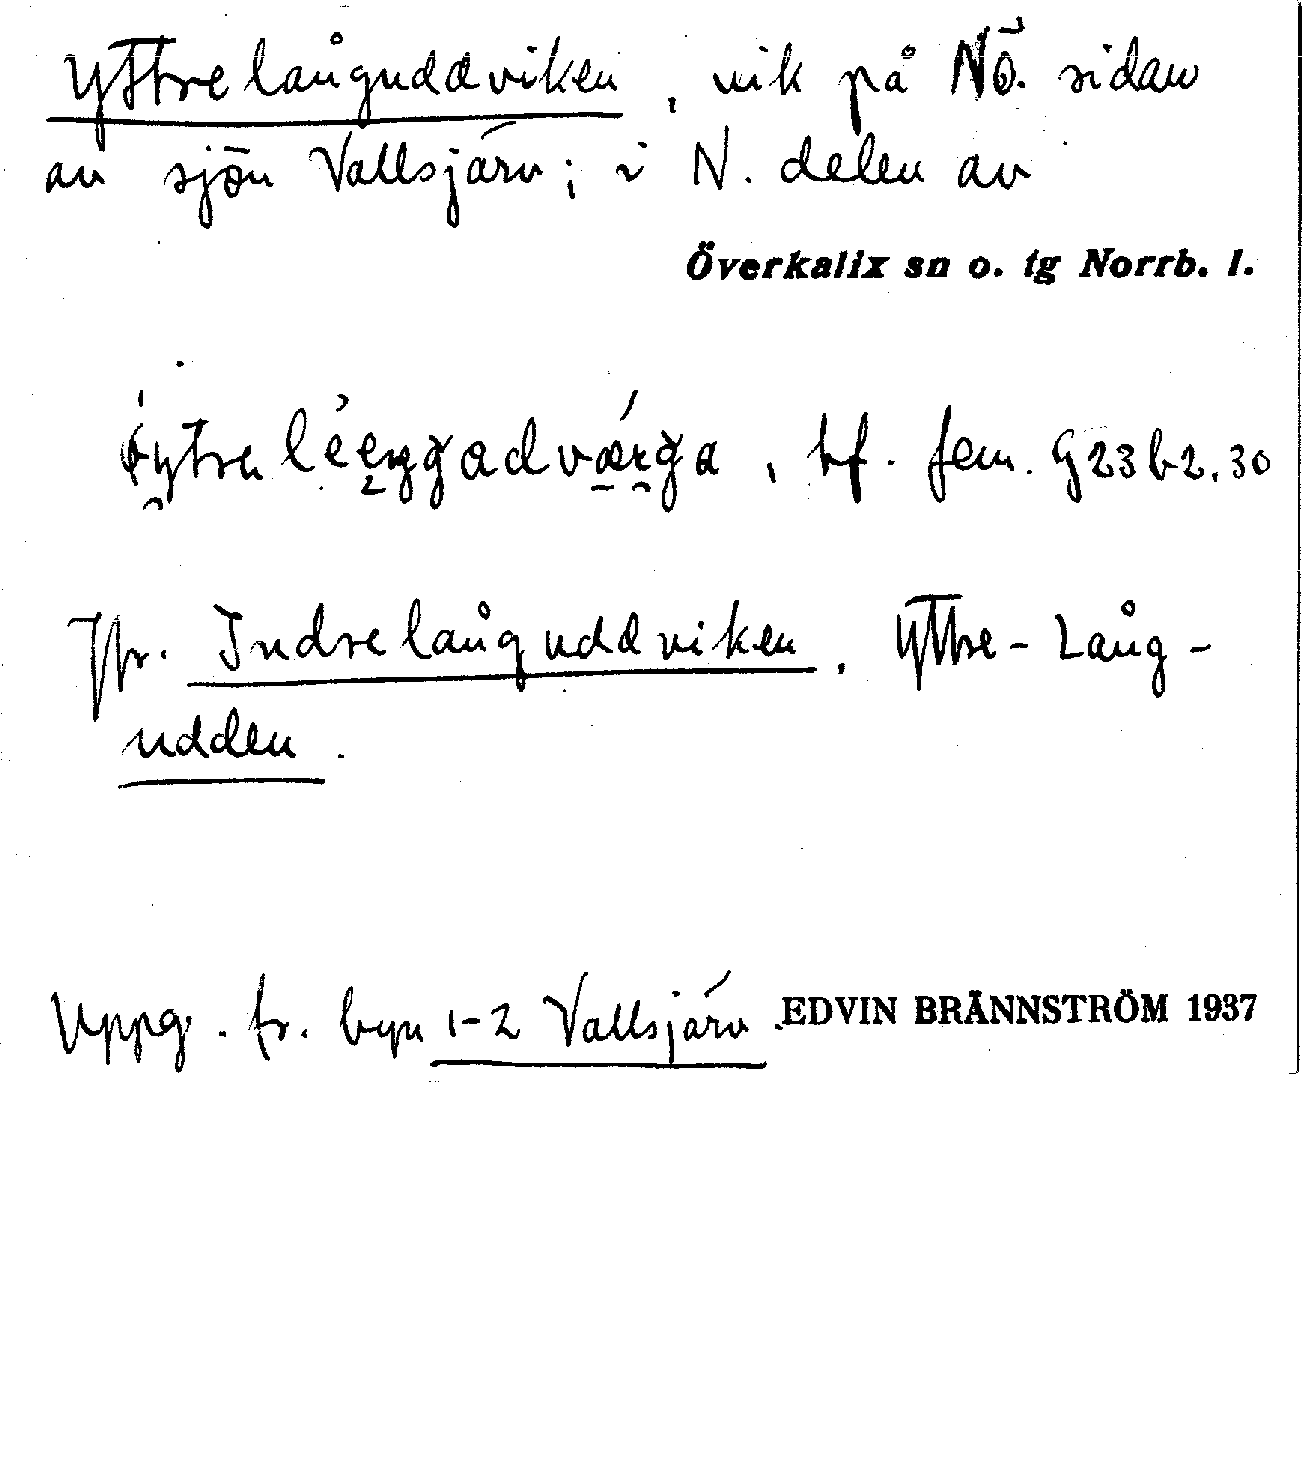 Yttrelånguddviken, vik på NÖ. sidan
av sjön Vallsjärv; i N. delen av
Överkalix sn o. tg Norrb. l.
, bf. fem. G 23 b 2.30
Jfr. Indrelånguddviken, Yttre-Lång-
udden.
Uppg. fr. byn 1-2 Vallsjärv. EDVIN BRÄNNSTRÖM 1937